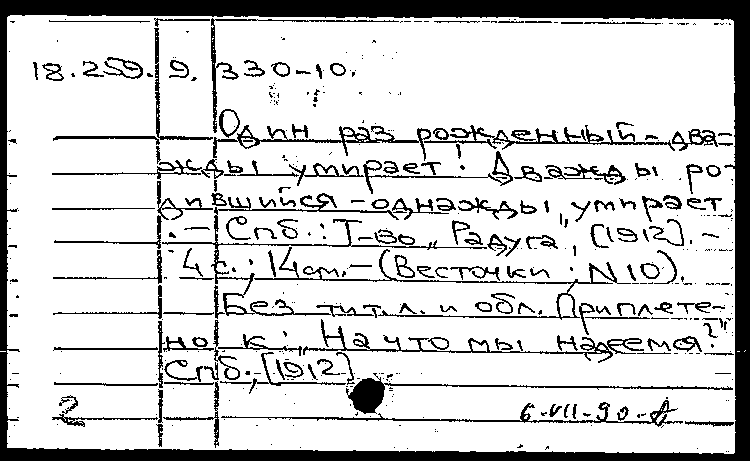 18.259.9.330-10.
Один раз рожденный - два-
жды умирает! Дважды ро-
дившийся - однажды "умирает
. - Спб.: Т-во "Радуга", [1912]. -
4 с.; 14 см. - (Весточки; N 10).
Без тит. л. и обл. Приплете-
но к: "На что мы надеемся?"
Спб., [1912]
2
6-VII-90-А